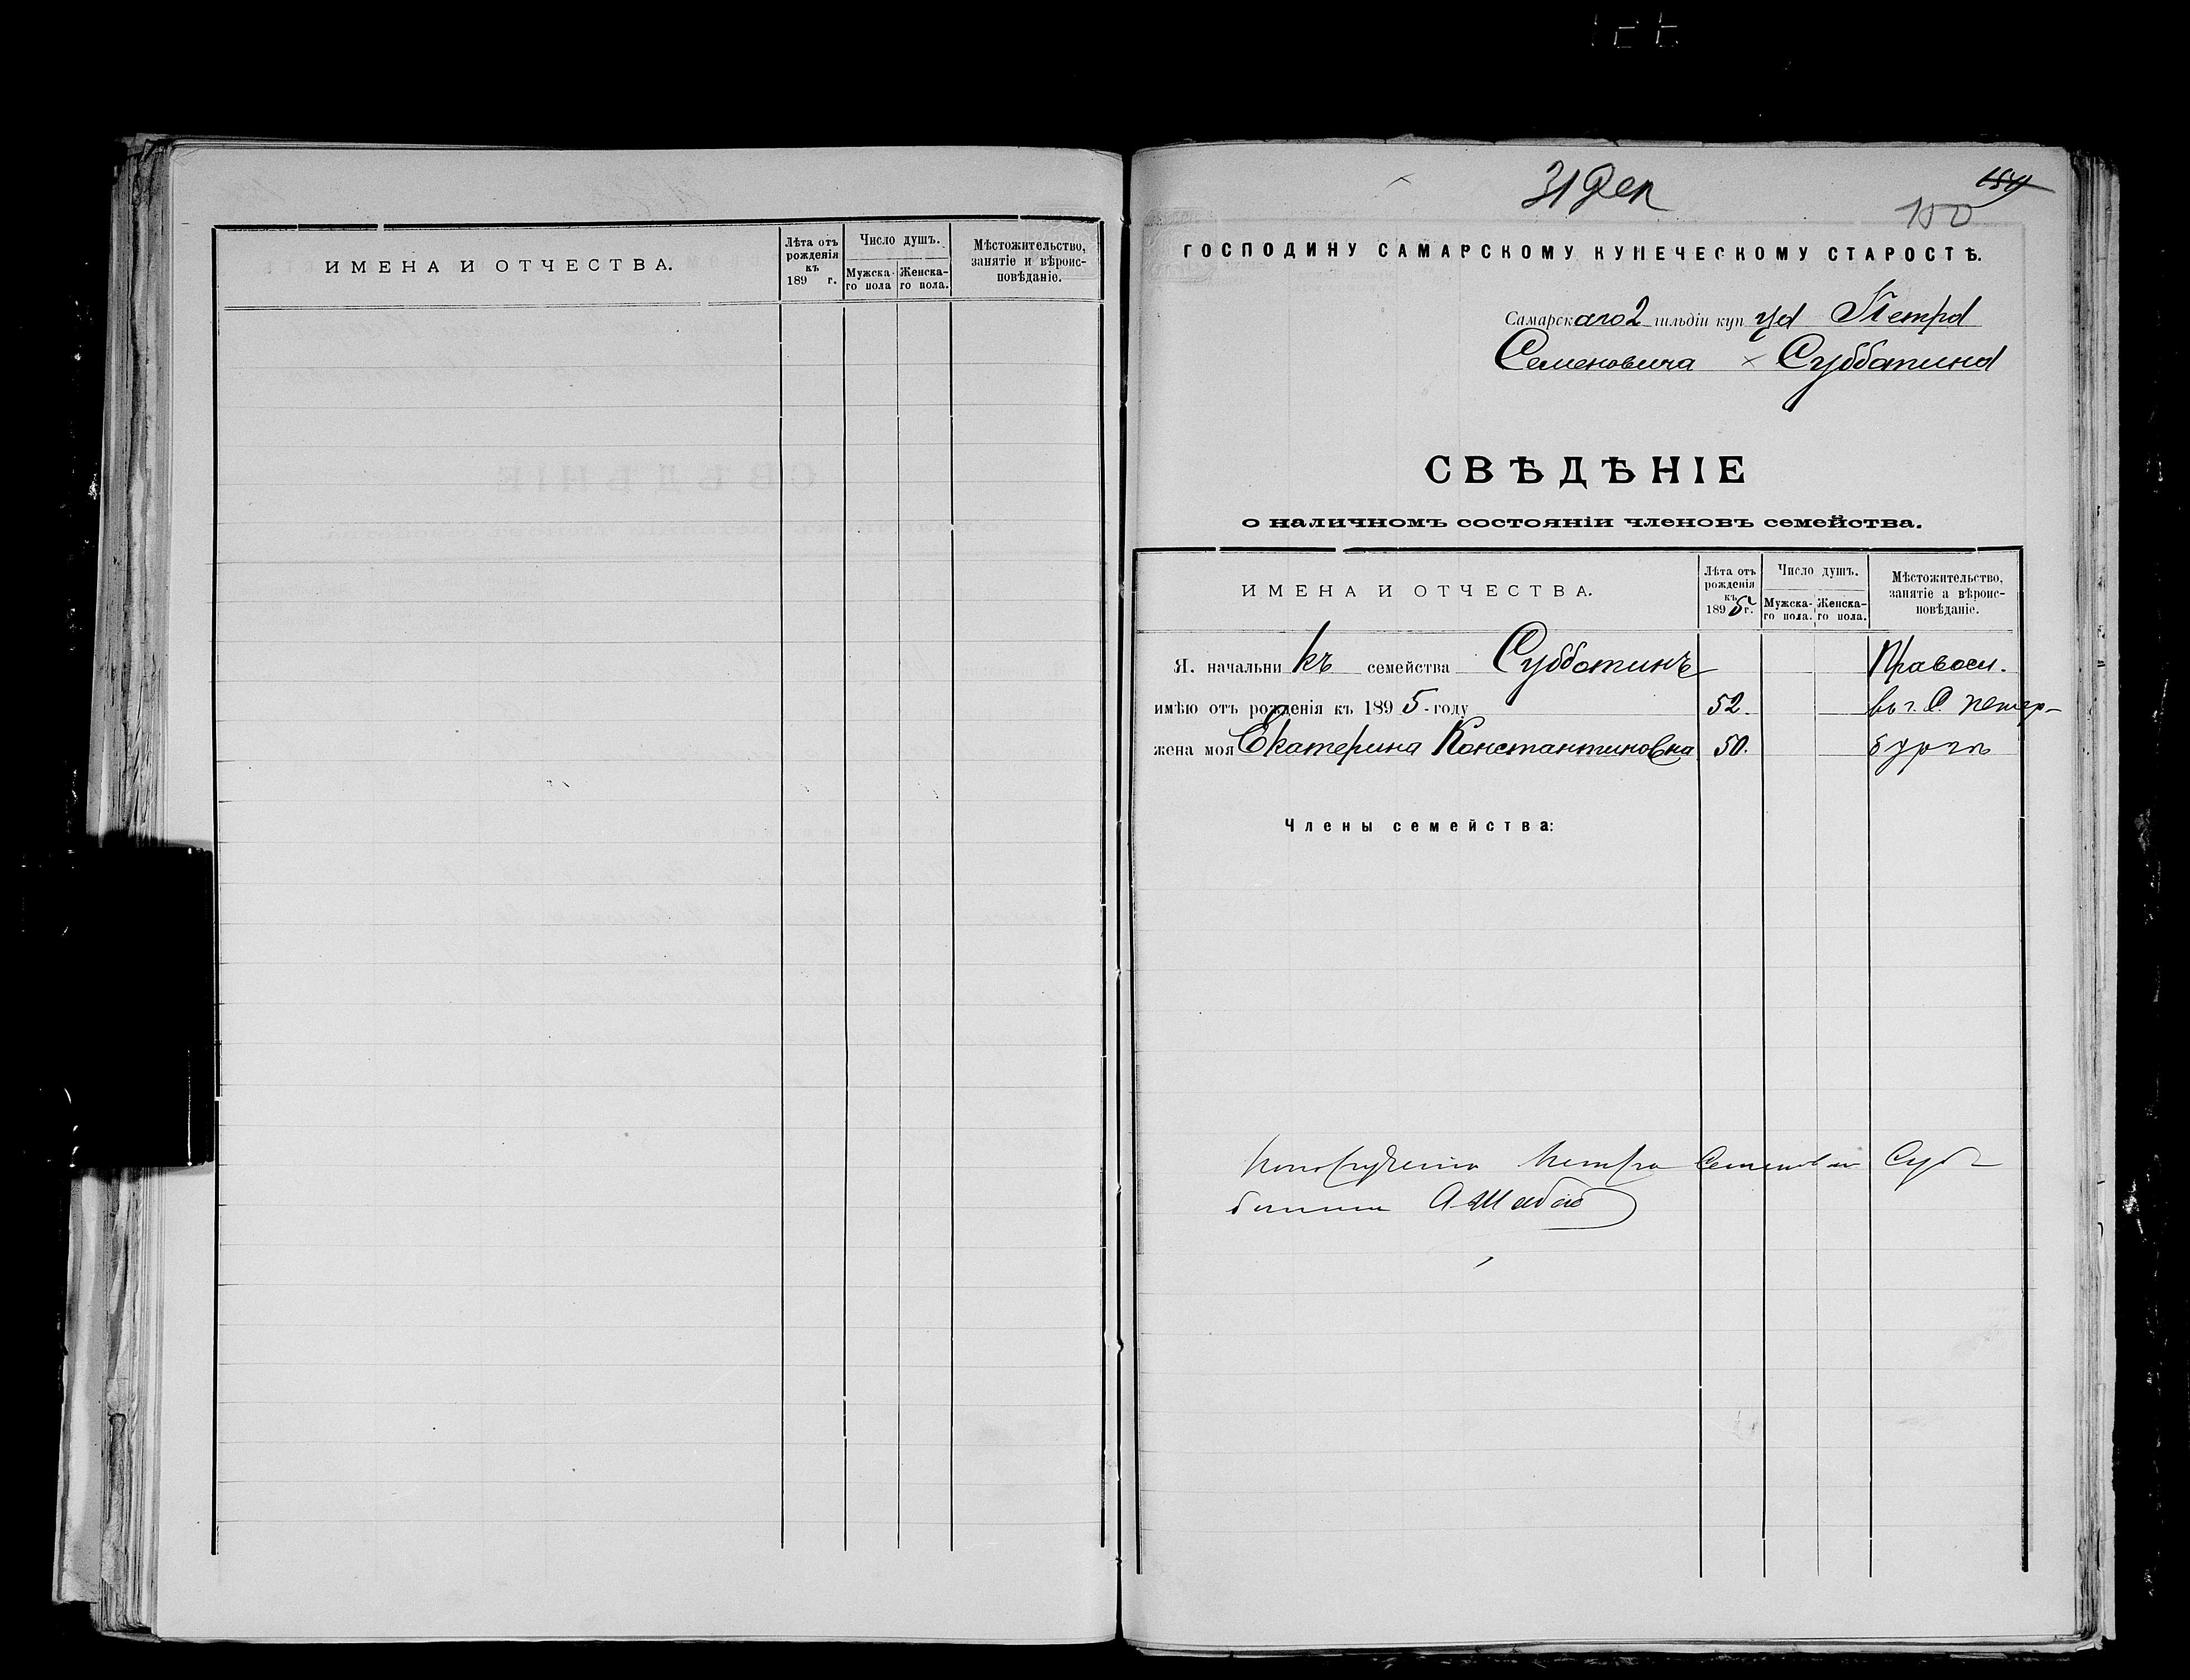 ИМЕНА И ОТЧЕСТВА.
Лѣта отъ рожденія къ 189 г.
Число душъ.
Мужска-го пола
Женска-го пола.
Мѣстожительство, занятіе и вѣроис-повѣданіе.
31 Дек
150
ГОСПОДИНУ САМАРСКОМУ КУПЕЧЕСКОМУ СТАРОСТѢ.
Самарскаго 2 гильдіи купца Петра
Семеновича × Субботина
СВѢДѢНІЕ
о наличномъ состояніи членовъ семейства.
ИМЕНА И ОТЧЕСТВА.
Лѣта отъ рожденія къ 1895 г.
Число душъ.
Мужска-го пола.
Женска-го пола.
Мѣстожительство, занятіе а вѣроис-повѣданіе.
Я. начальникъ семейства Субботинъ Правосл.
имѣю отъ рожденія къ 1895-году 52. въ г. С. Петер-
жена моя Екатерина Константиновна 50. бургѣ
Члены семейства:
Петра Семеновича Суб-